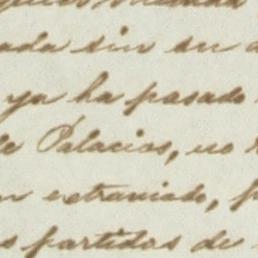 ada sin su
ya ha pasado
de Palacios, no
extraviado, p
s partidas de